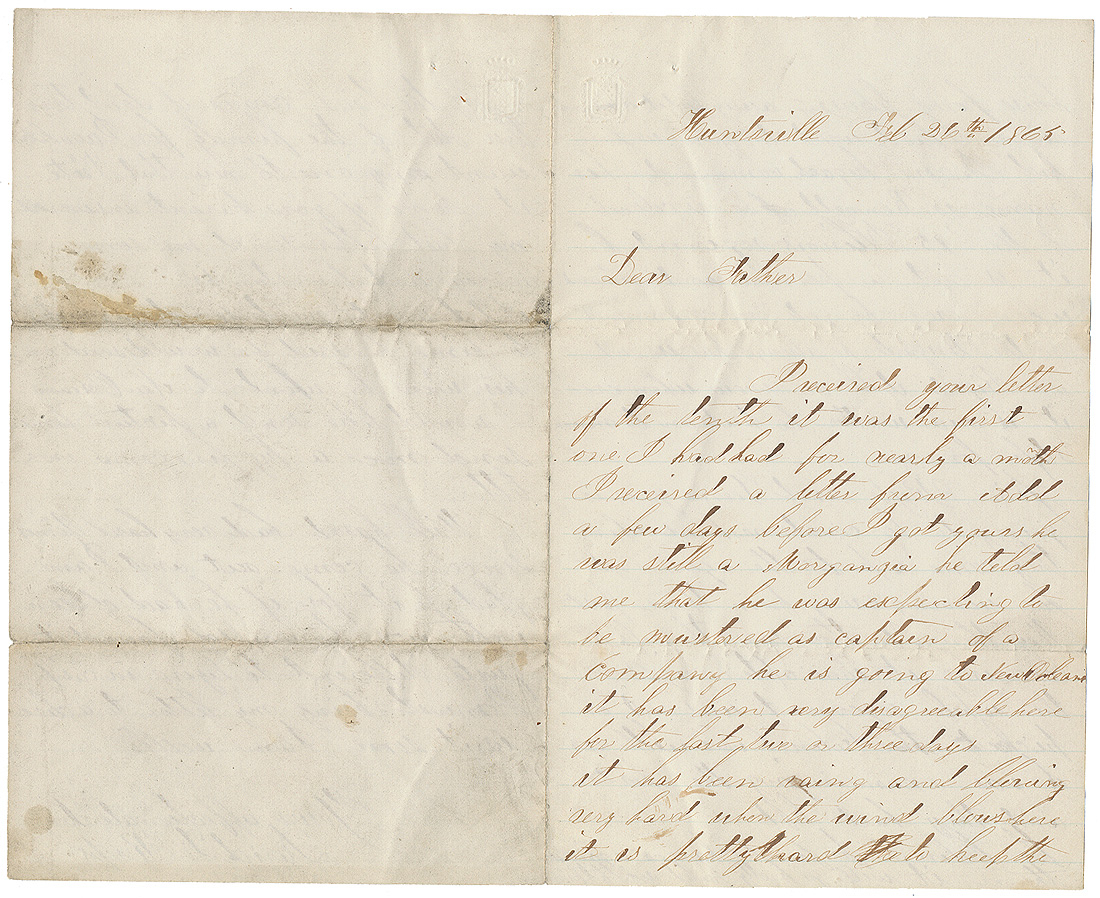 Huntsville Feb 26th 1865
Dear Father
I received your letter
of the tenth it was the first
one I had had for nearly a moth
I received a letter from Add
a few days before I got yours he
was still a Morganzia he told
me that he was expecting to
be mustered as captain of a
company he is going to New Orleans
it has been very disagreeable here
for the past two or three days
it has been raing and blowing
very hard when the wind blows here
it is pretty hard to keep the